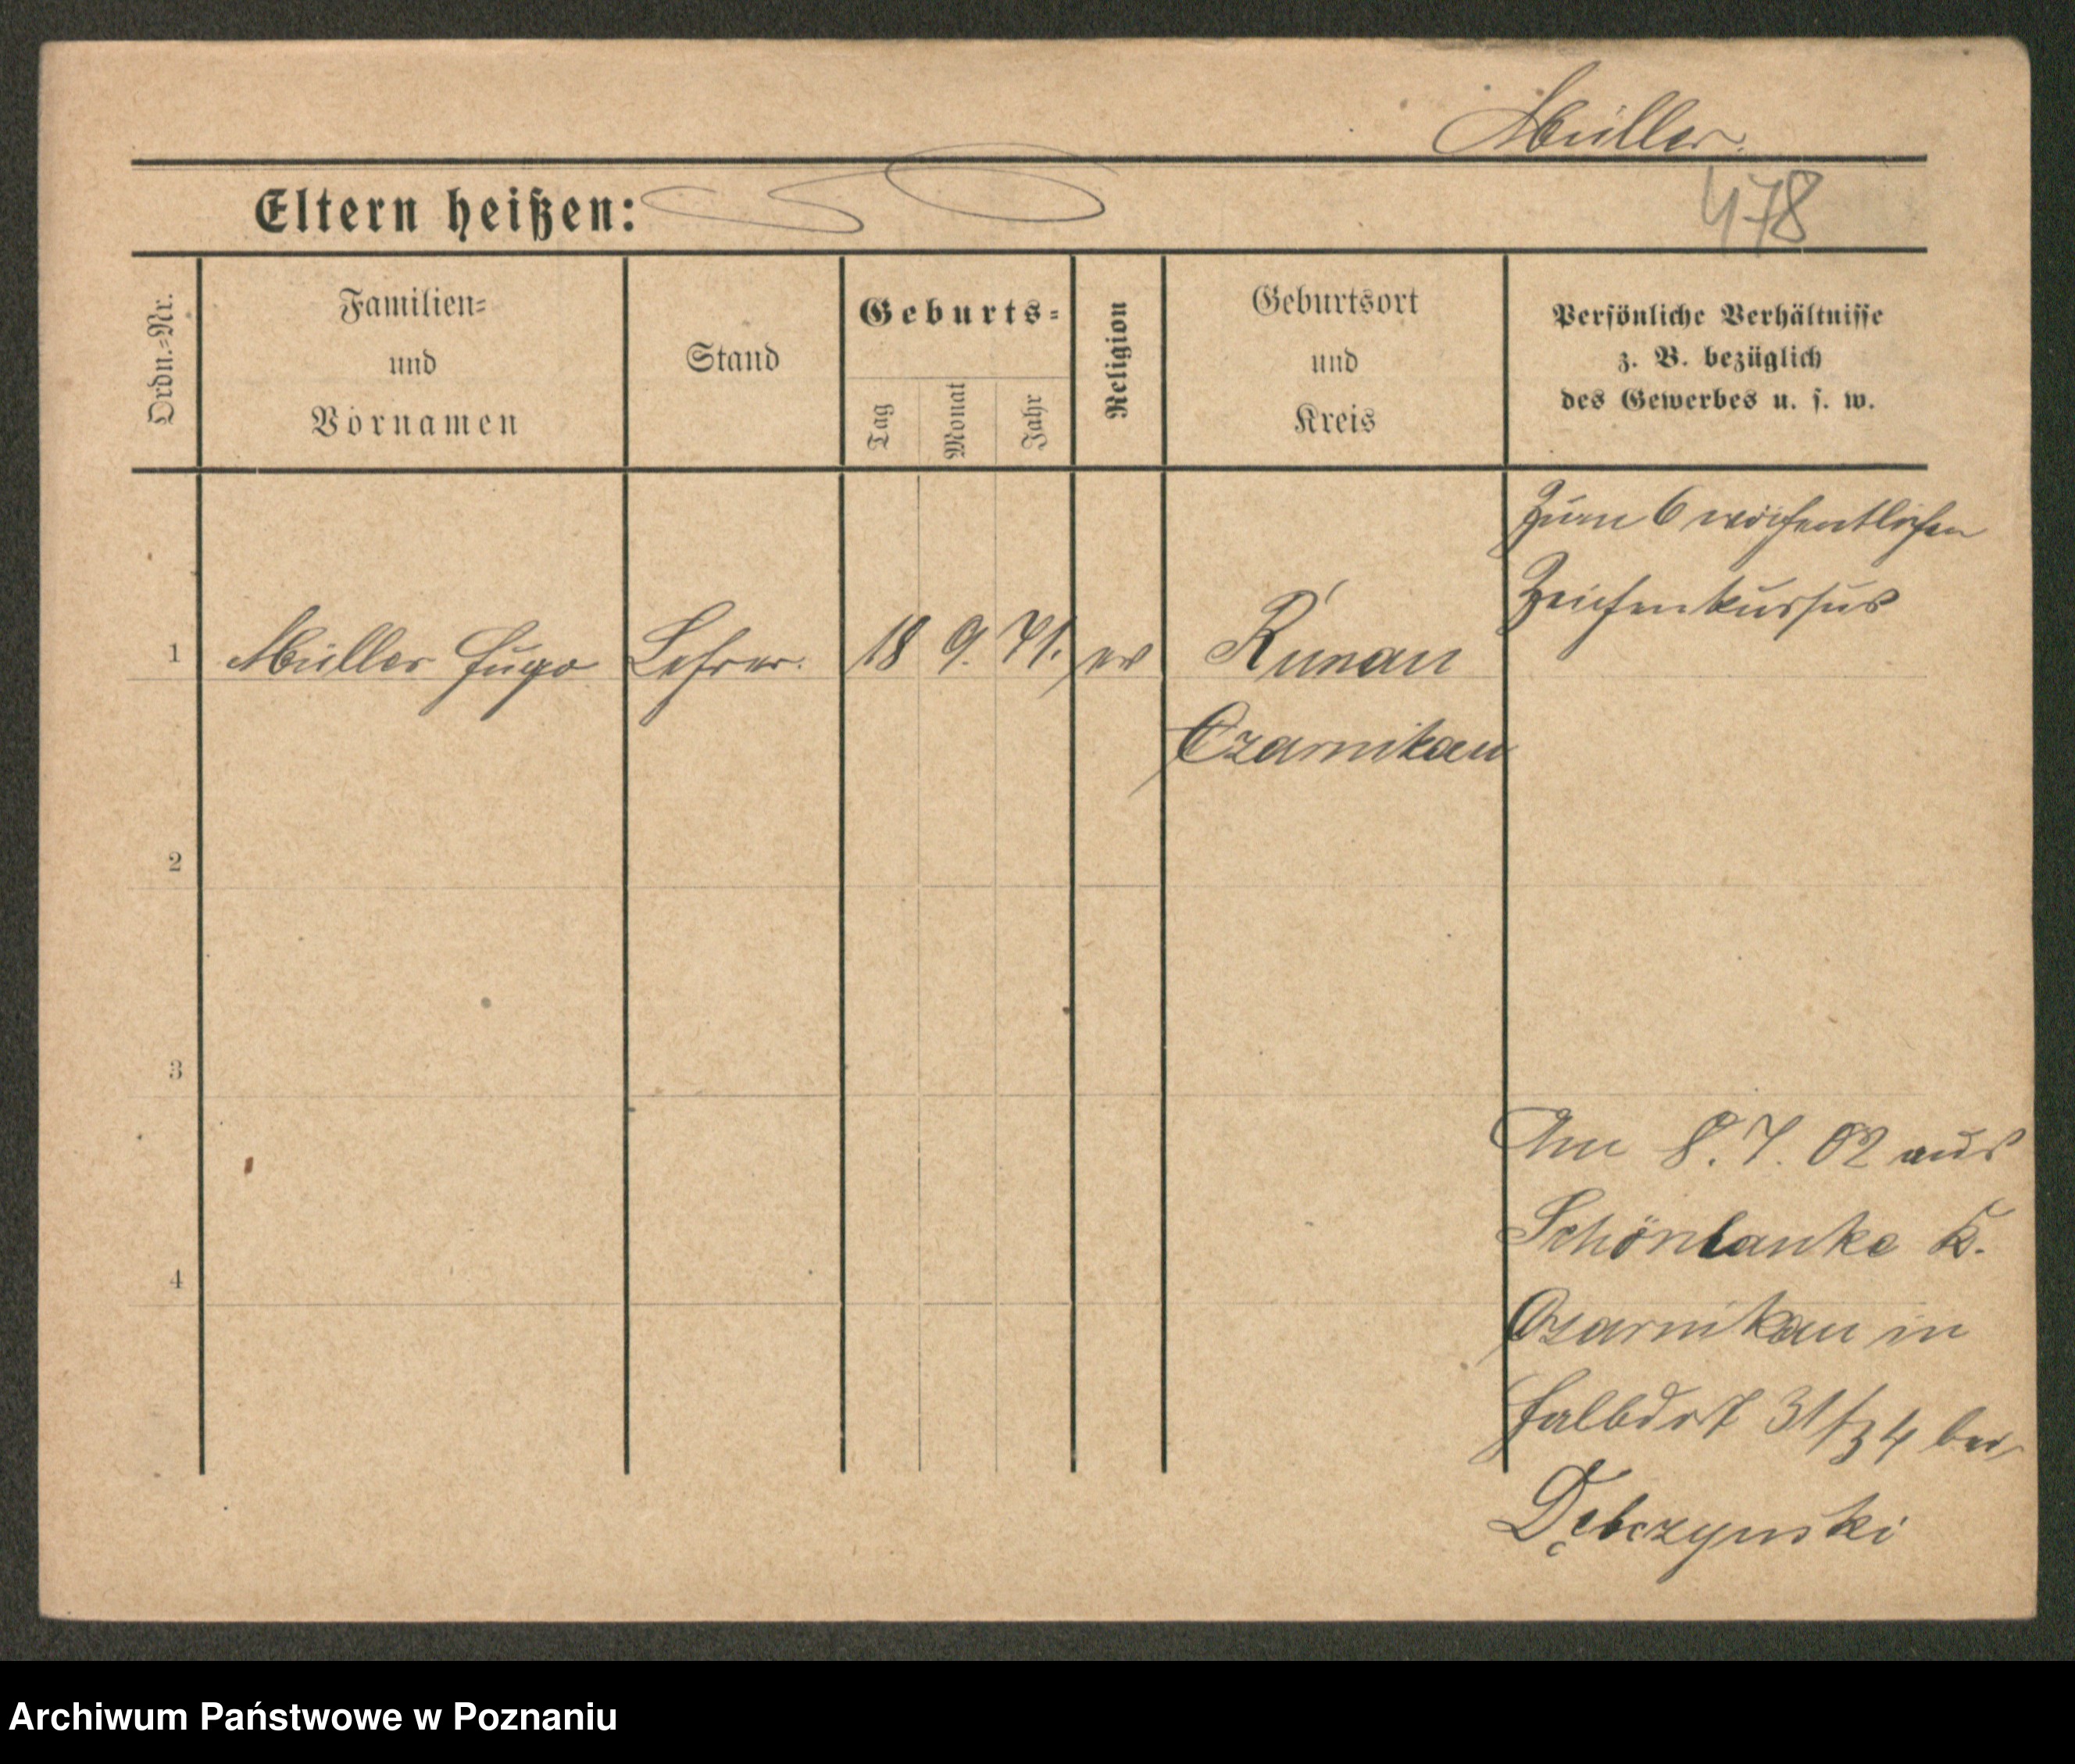 Müller.
Eltern heißen:
478
Ordn.-Nr.
Familien-
und
Vornamen
Stand
Geburts-
Tag
Monat
Jahr
Religion
Geburtsort
und
Kreis
Persönliche Verhältnisse
z. B. bezüglich
des Gewerbes u. s. w.
Zum 6 wöchentlichen
Zeichenkursus
1 Müller Hugo Lehrer. 18 9. 71. ev Runau
Czarnikau
2
3
Am 8. 7. 02 aus
Schönlanke K.
4
Czarnikau in
Halbdrf 31/34 bei
Dębczynski
Archiwum Państwowe w Poznaniu